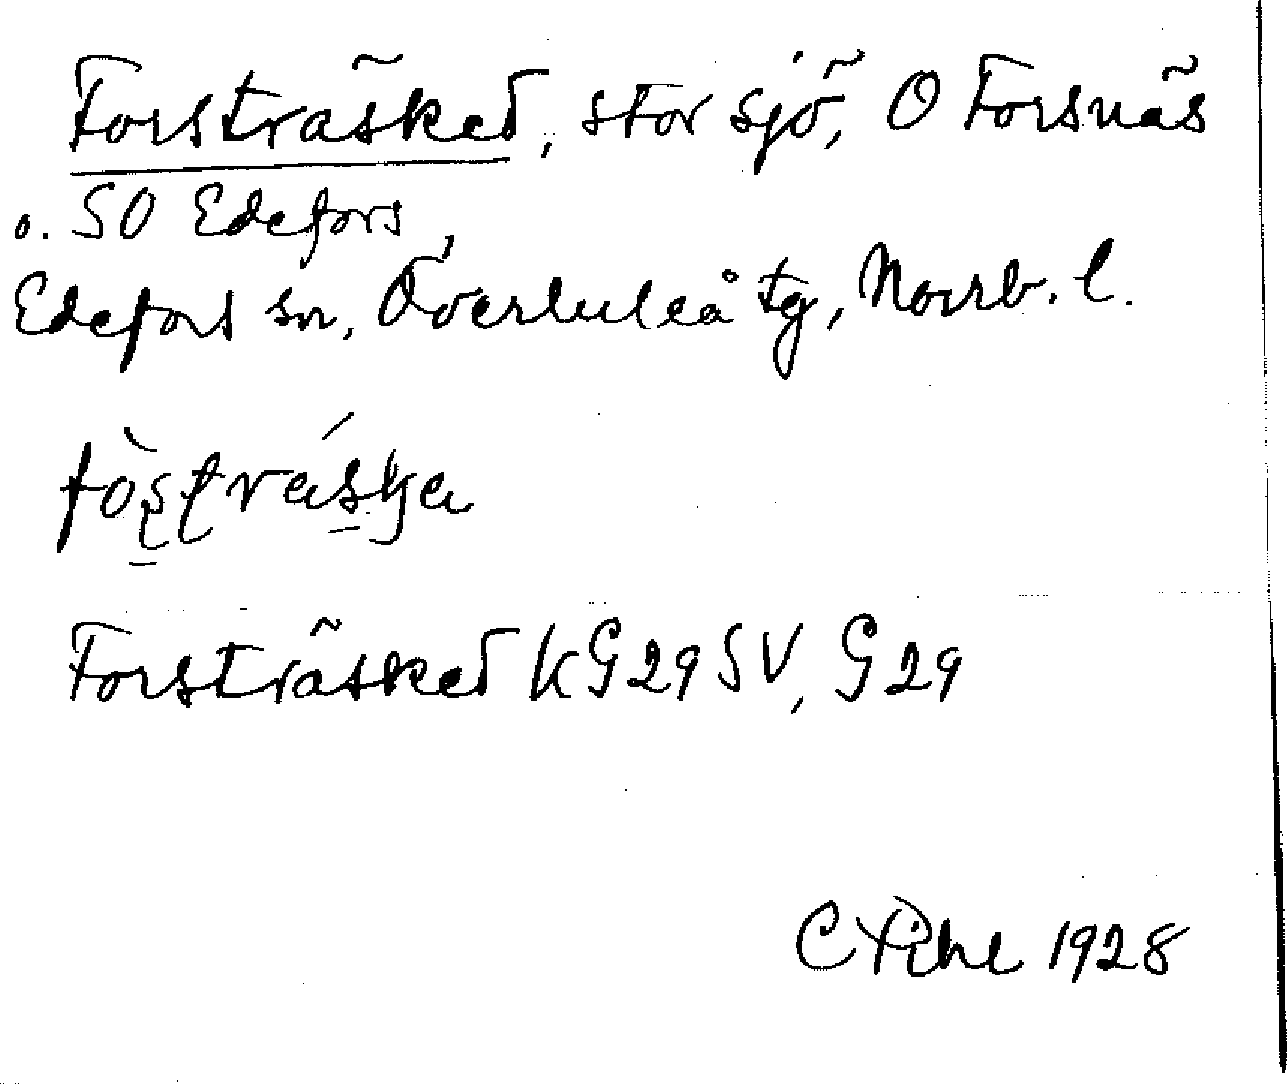 Forsträsket, stor sjö, O Forsnäs
o. SO Edefors,
Edefors sn, Överluleå tg, Norrb. l.
Forsträsket KG29SV, G29
C Pihl 1928